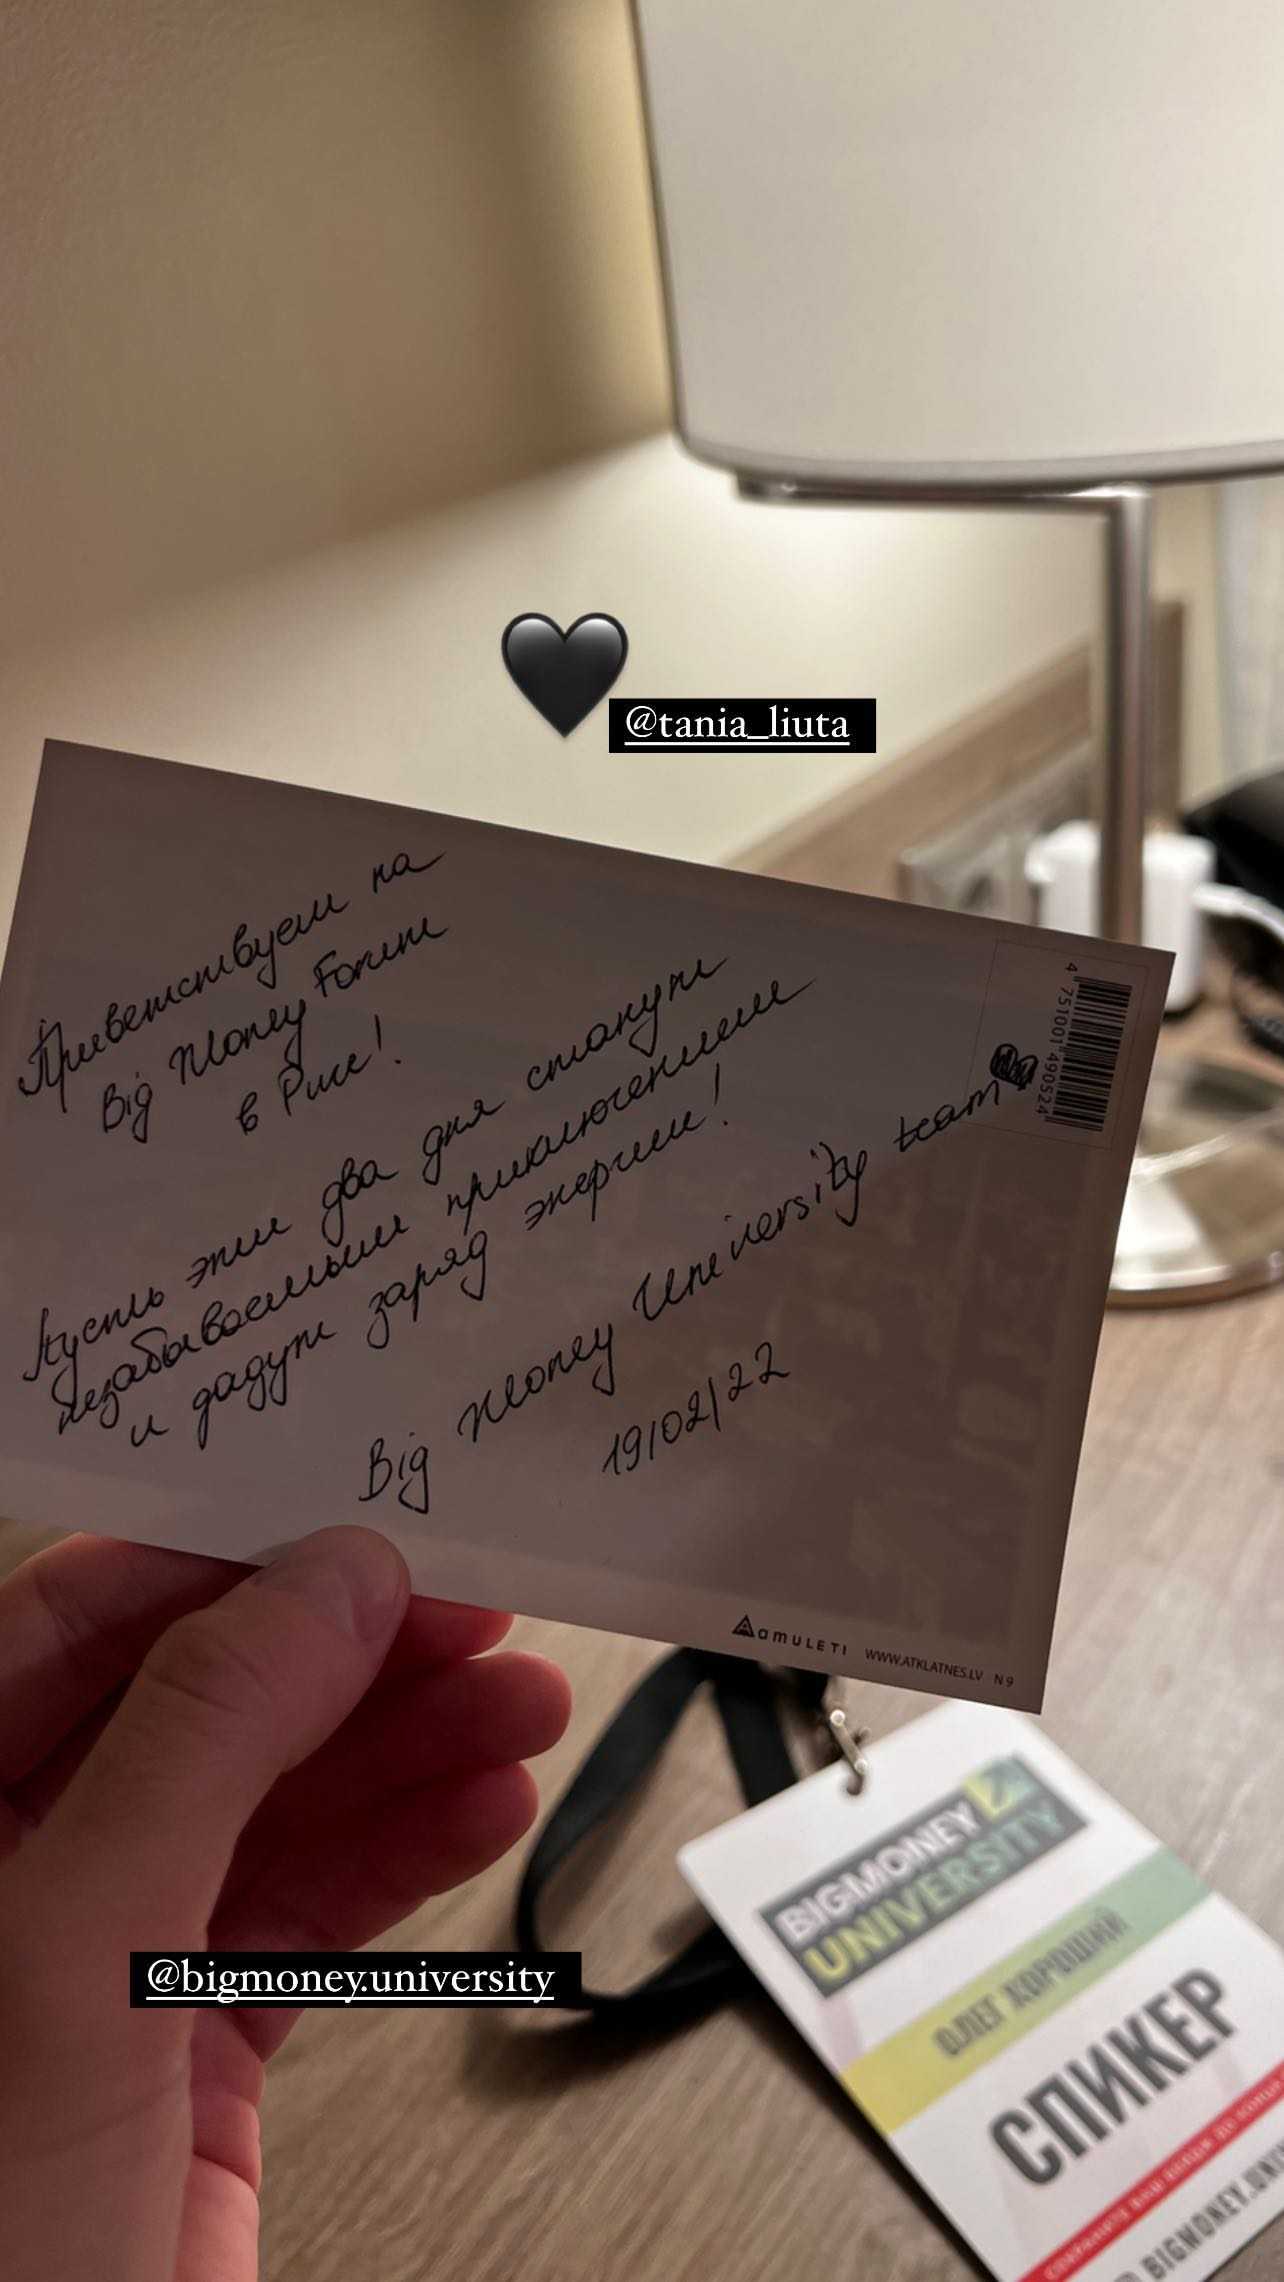 @tania_liuta
Приветствуем на
Big Money Forum
в Риге!
Пусть эти два дня станут
незабываемыми приключениями
и дадут заряд энергии!
Big Money University team
19/02/22
4 751001 490524
amuleti WWW.ATKLATNES.LV N 9
@bigmoney.university
BIGMONEY
UNIVERSITY
ОЛЕГ ХОРОШИЙ
СПИКЕР
BIGMONEY.UNI